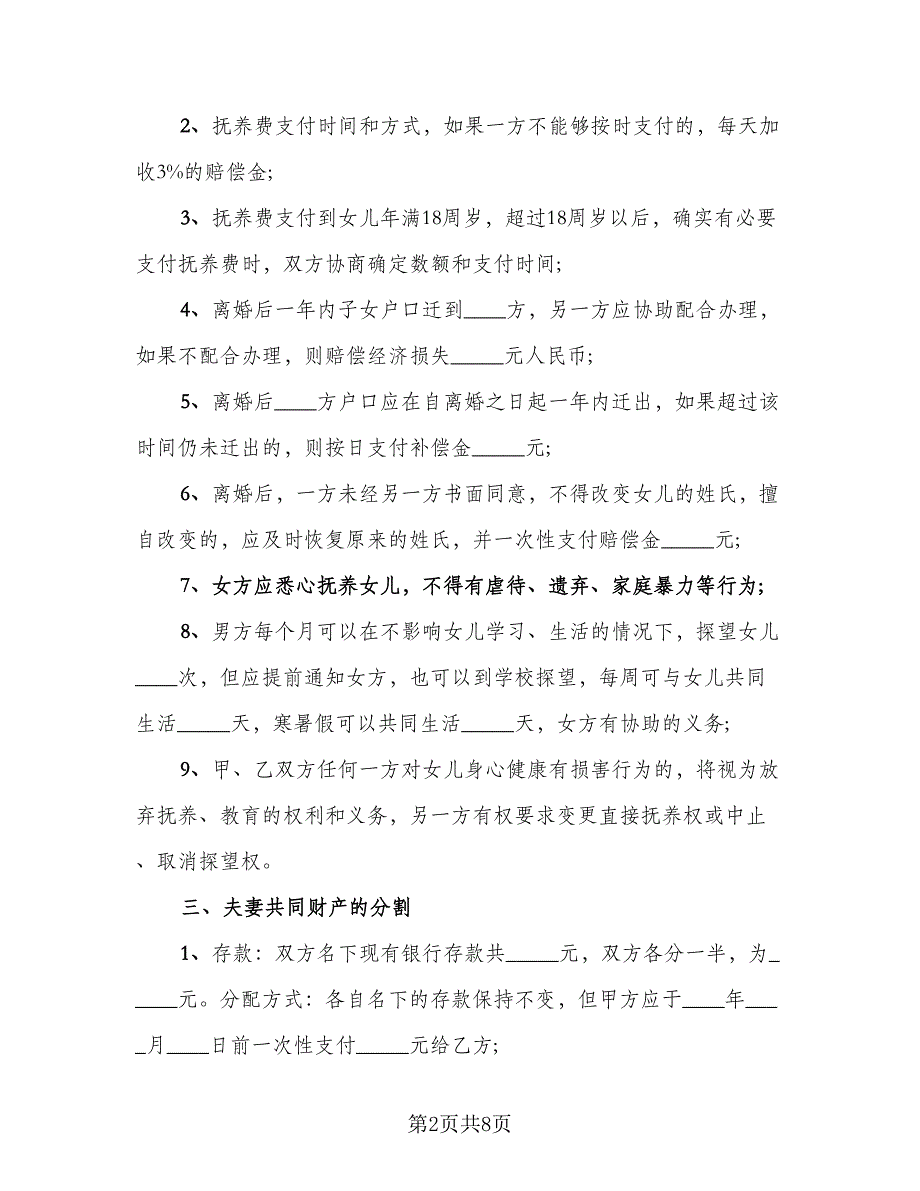 2、抚养费支付时间和方式，如果一方不能够按时支付的，每天加
收3%的赔偿金;
3、抚养费支付到女儿年满18周岁，超过18周岁以后，确实有必要
支付抚养费时，双方协商确定数额和支付时间;
4、离婚后一年内子女户口迁到____方，另一方应协助配合办理，
如果不配合办理，则赔偿经济损失_____元人民币;
5、离婚后____方户口应在自离婚之日起一年内迁出，如果超过该
时间仍未迁出的，则按日支付补偿金_____元;
6、离婚后，一方未经另一方书面同意，不得改变女儿的姓氏，擅
自改变的，应及时恢复原来的姓氏，并一次性支付赔偿金_____元;
7、女方应悉心抚养女儿，不得有虐待、遗弃、家庭暴力等行为;
8、男方每个月可以在不影响女儿学习、生活的情况下，探望女儿
____次，但应提前通知女方，也可以到学校探望，每周可与女儿共同
生活_____天，寒暑假可以共同生活_____天，女方有协助的义务;
9、甲、乙双方任何一方对女儿身心健康有损害行为的，将视为放
弃抚养、教育的权利和义务，另一方有权要求变更直接抚养权或中止
、取消探望权。
三、夫妻共同财产的分割
1、存款：双方名下现有银行存款共_____元，双方各分一半，为_
____元。分配方式：各自名下的存款保持不变，但甲方应于____年___
_月____日前一次性支付_____元给乙方;
第2页共8页